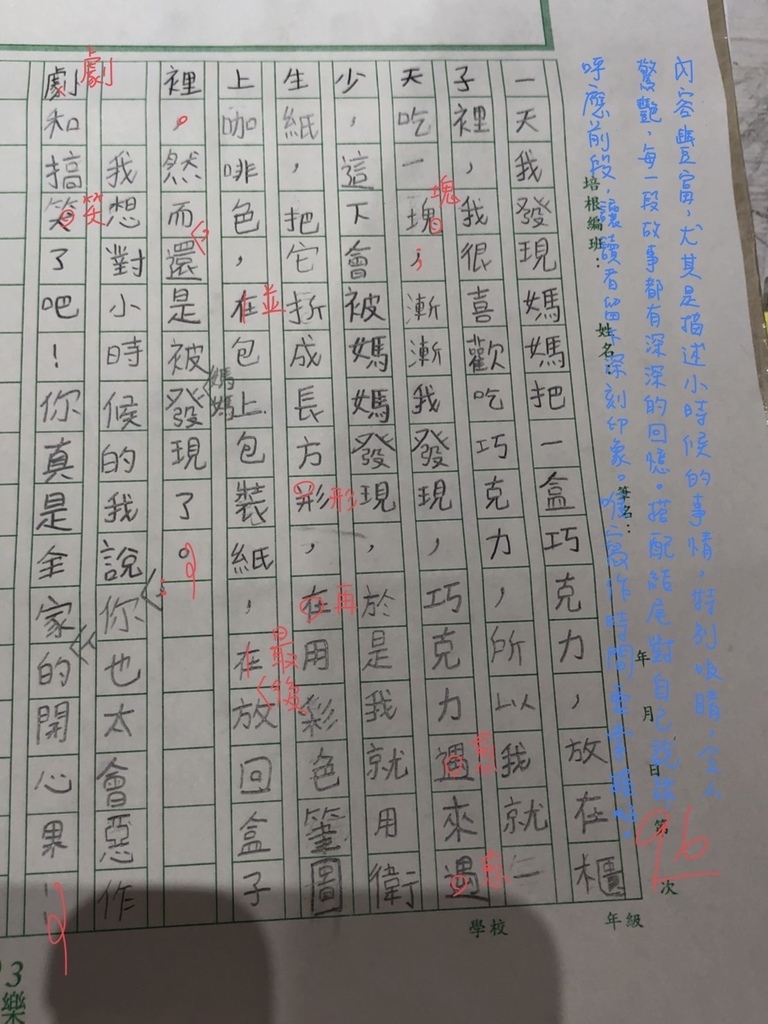 內容豐富，尤其是描述小時候的事情，特別吸睛，令人
驚艷，每一段故事都有深深的回憶。搭配結尾對自己
呼應前段，讓讀者留下深刻印象。寫作時間
培根編班：
姓名：
筆名：
年 月 日 第 次
96
學校 年級
一天我發現媽媽把一盒巧克力，放在櫃
子裡，我很喜歡吃巧克力，所以我就一
天吃一塊，漸漸我發現，巧克力遇來遇
塊
少，這下會被媽媽發現，於是我就用衛
生紙，把它折成長方形，在用彩色筆圖
形
再
上咖啡色，在包上包裝紙，在放回盒子
並
最後
裡。然而還是被發現了。
媽媽
我想對小時候的我說你也太會惡作
：
劇和搞笑了吧！你真是全家的開心果！
劇
笑
3
樂